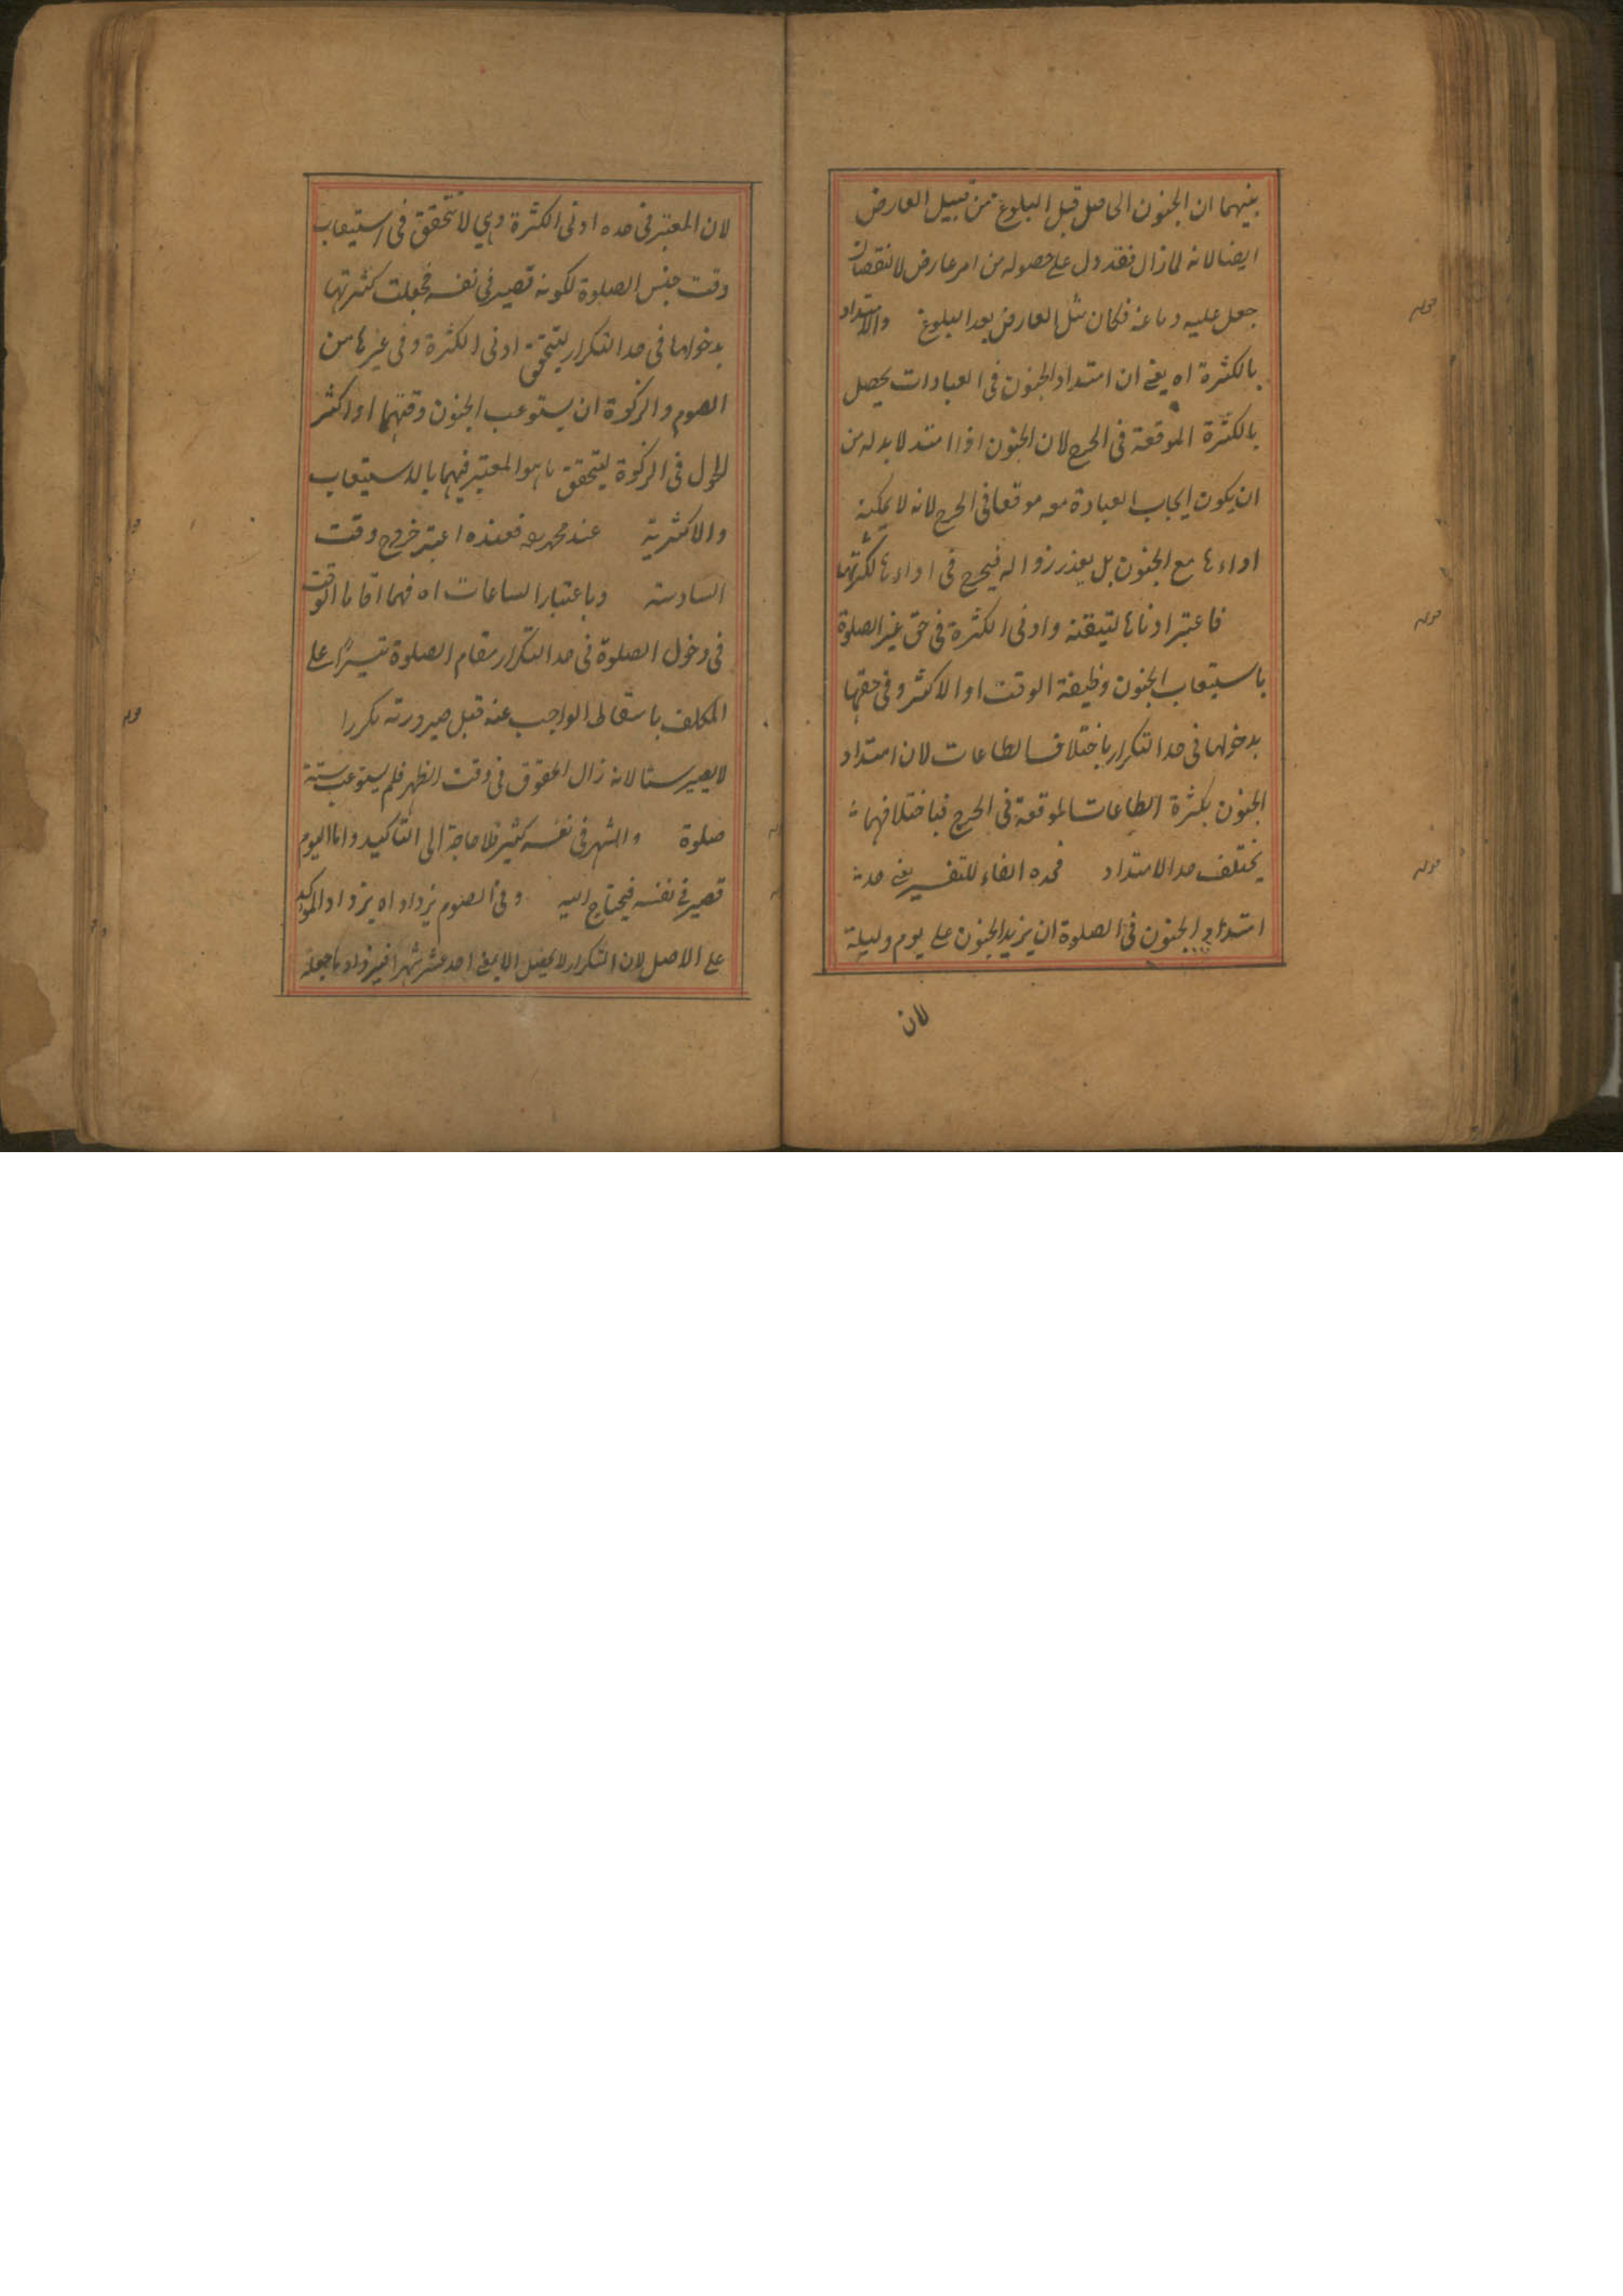 بينهما ان الجنون الحاصل قبل البلوغ من قبيل العارض
ايضا لانه لما زال فقد دل على حصوله من امر عارض لا نقصان
جبل عليه دماغه فكان مثل العارض بعد البلوغ والامتداد
بالكثرة اه يعنى ان امتداد الجنون فى العبادات يحصل
بالكثرة الموقعة فى الحرج لان الجنون اذا امتد لا بد له من
ان يكون ايجاب العبادة معه موقعا فى الحرج لانه لا يمكنه
اداءها مع الجنون بل بعد زواله فيحرج فى اداءها لكثرتها
فاعتبر ادناها لتيقنه وادنى الكثرة فى حق غير الصلوة
باستيعاب الجنون وظيفة الوقت او الاكثر وفى حقها
بدخولها فى حد التكرار باختلاف الطاعات لان امتداد
الجنون بكثرة الطاعات الموقعة فى الحرج فباختلافها
يختلف حد الامتداد فحده الفاء للتفسير يعنى حد
امتداد الجنون فى الصلوة ان يزيد الجنون على يوم وليلة
لان
قوله
قوله
قوله
لان المعتبر فى حده ادنى الكثرة وهي لا تتحقق فى استيعاب
وقت جنس الصلوة لكونه قصير فى نفسه فجعلت كثرتها
بدخولها فى حد التكرار ليتحقق ادنى الكثرة وفى غيرها من
الصوم والزكوة ان يستوعب الجنون وقتهما او اكثر
الحول فى الزكوة ليتحقق ما هو المعتبر فيهما بالاستيعاب
والاكثرية عند محمد رح فعنده اعتبر خروج وقت
السادسة وباعتبار الساعات اه فهما اقاما الوقت
فى دخول الصلوة فى حد التكرار مقام الصلوة تيسيرًا على
المكلف باسقاط الواجب عنه قبل صيرورته مكررا
لا يصير ستا لانه زال العقوق فى وقت الظهر فلم يستوعب ستة
صلوة والشهر فى نفسه كثير فلا حاجة الى التاكيد واما اليوم
قصير فى نفسه فيحتاج اليه وفى الصوم يزداد اه يزداد الموكد
على الاصل لان التكرار لا يحصل الا بمضى احد عشر شهرا فيزداد ما جعلته